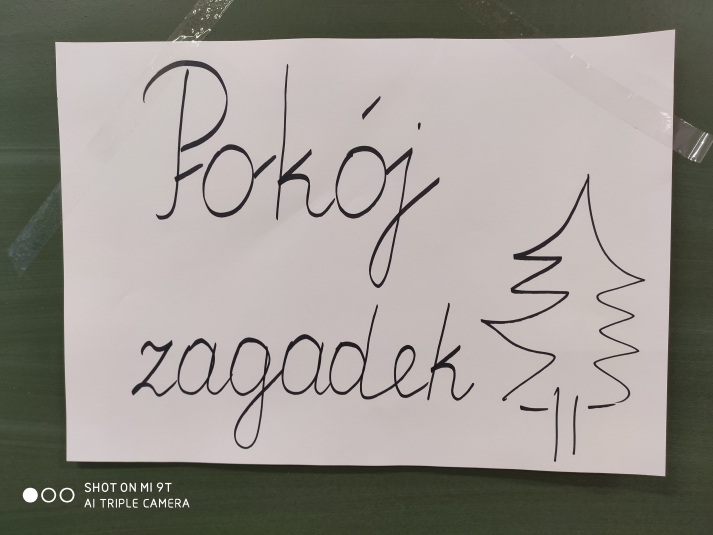 Pokój
zagadek
SHOT ON MI 9T
AI TRIPLE CAMERA